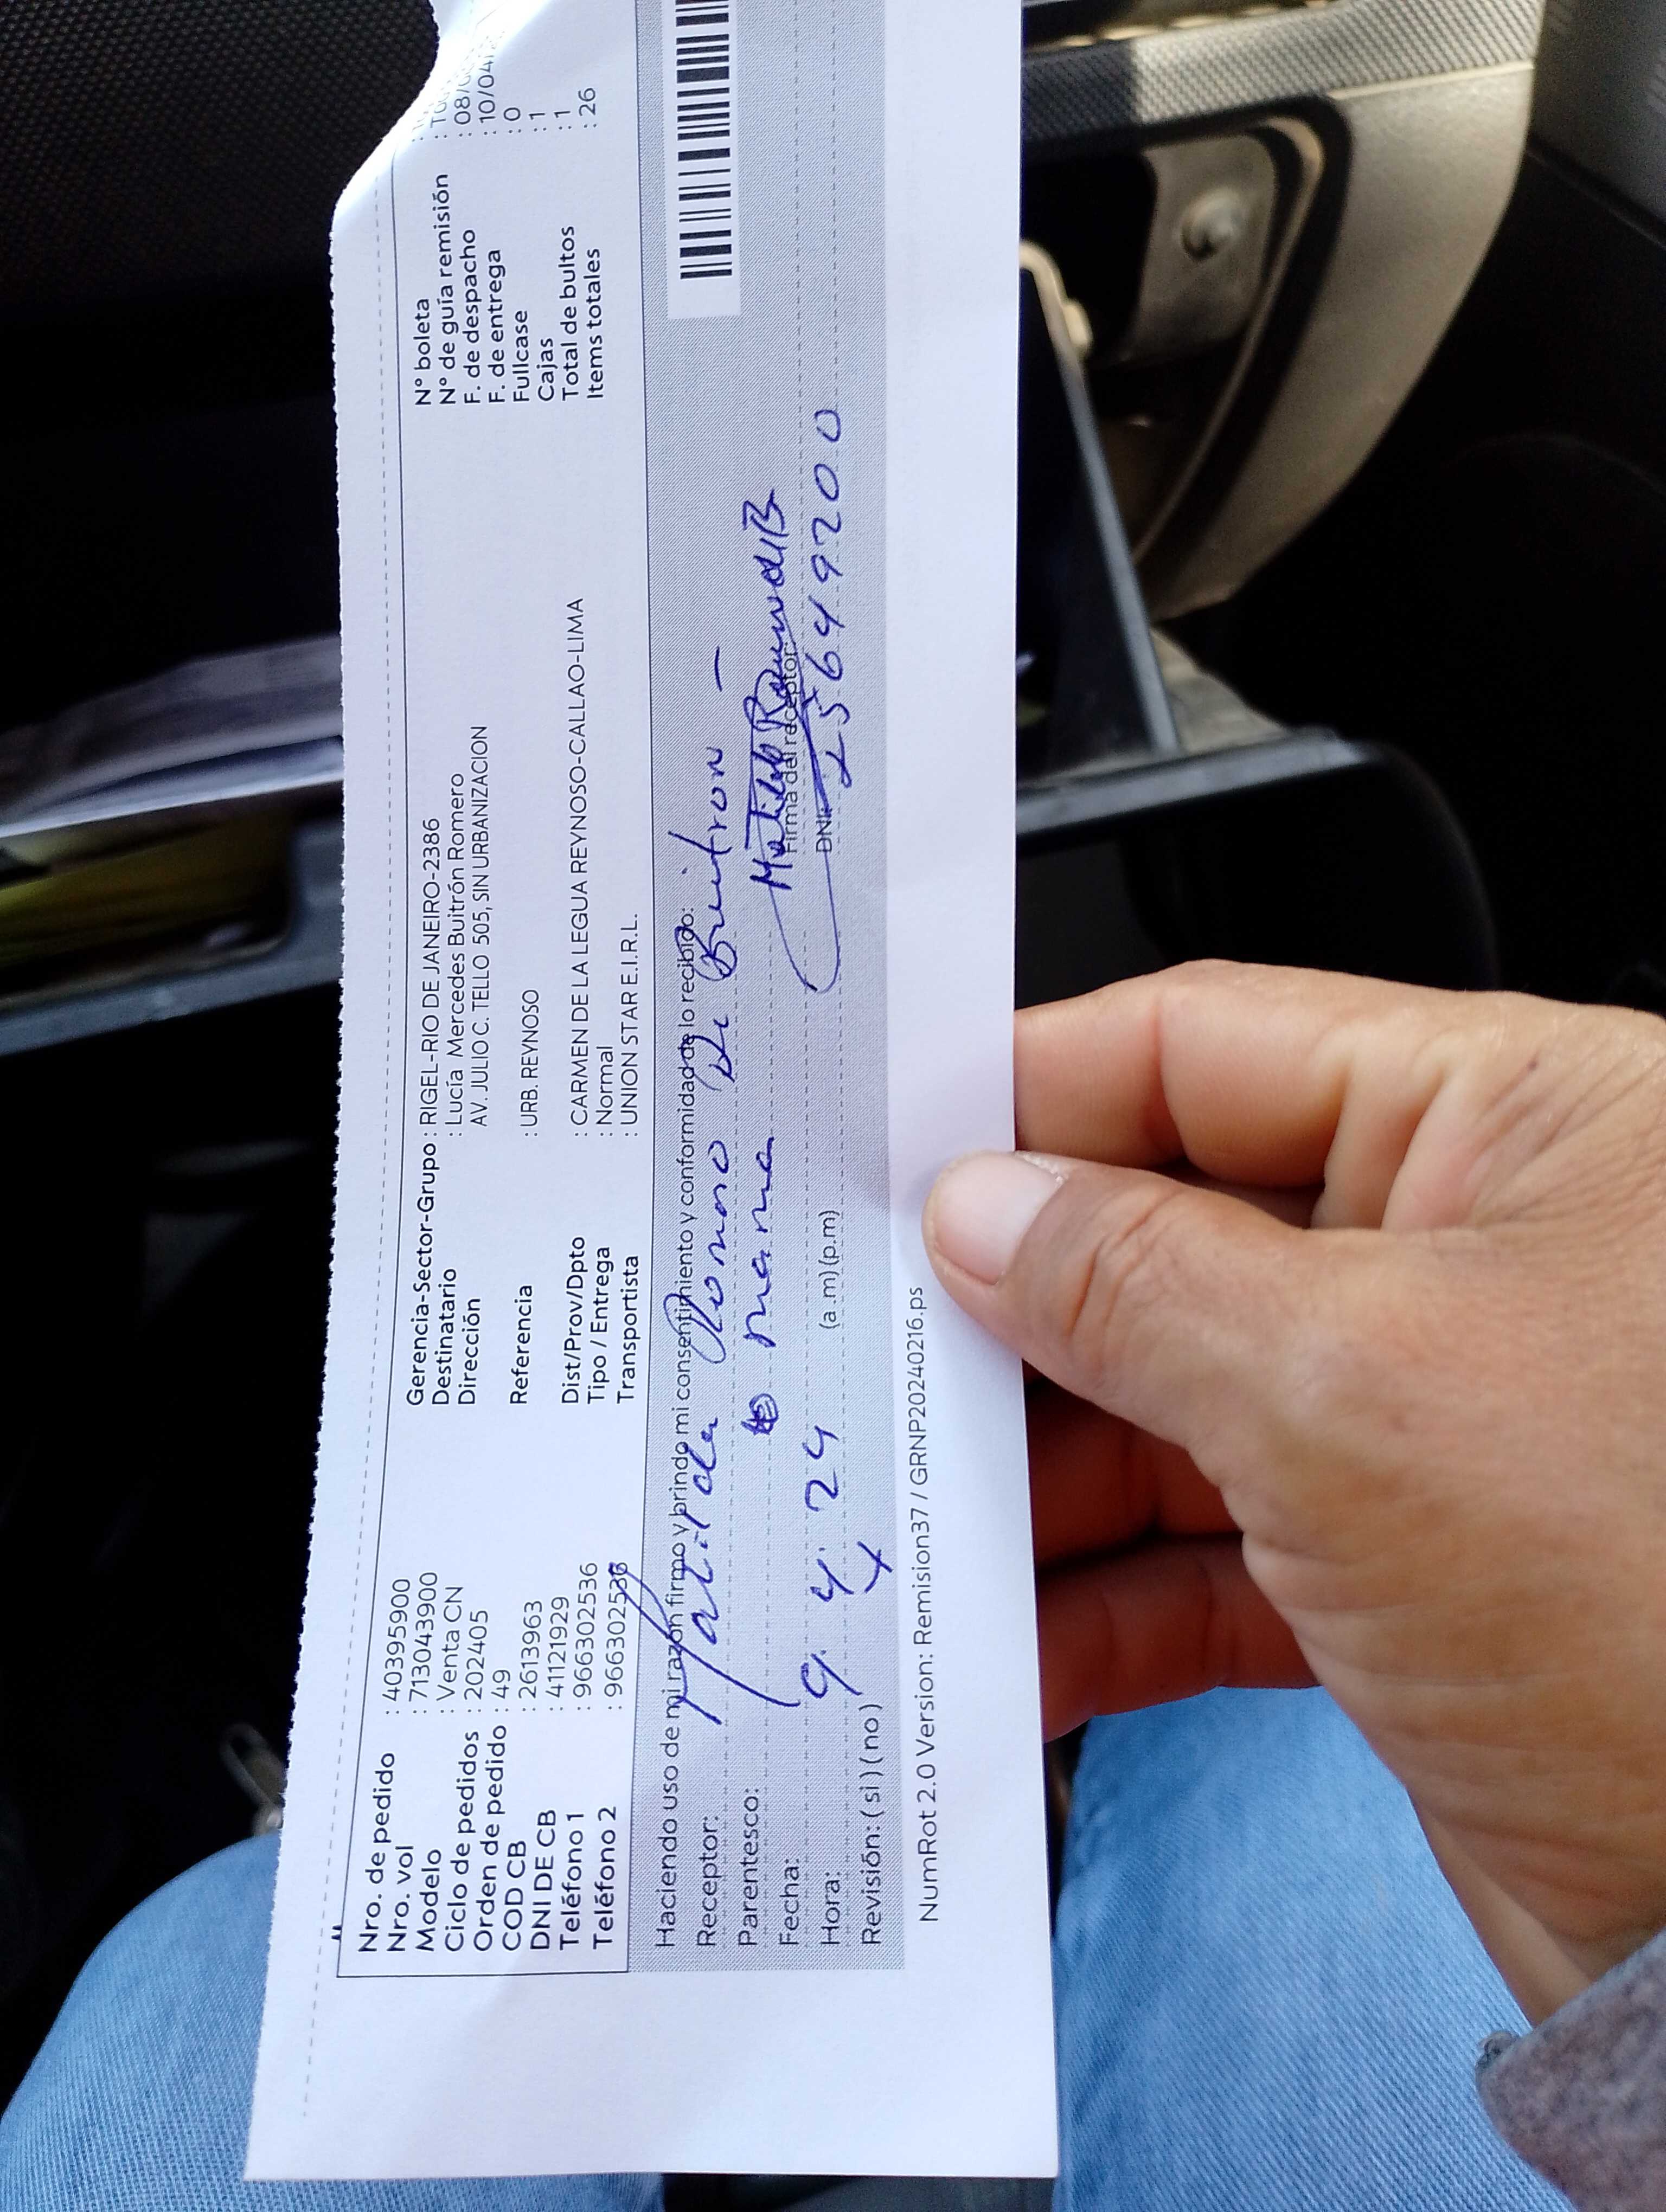 Nro. de pedido : 40395900
Nro. vol : 713043900
Modelo : Venta CN
Ciclo de pedidos : 202405
Orden de pedido : 49
COD CB : 2613963
DNI DE CB : 41121929
Teléfono 1 : 966302536
Teléfono 2 : 966302536
Gerencia-Sector-Grupo : RIGEL-RIO DE JANEIRO-2386
Destinatario : Lucía Mercedes Buitrón Romero
Dirección AV. JULIO C. TELLO 505, SIN URBANIZACION
Referencia : URB. REYNOSO
Dist/Prov/Dpto : CARMEN DE LA LEGUA REYNOSO-CALLAO-LIMA
Tipo / Entrega : Normal
Transportista : UNION STAR E.I.R.L.
N° boleta :
N° de guía remisión :
F. de despacho : 08/
F. de entrega : 10/04/
Fullcase : 0
Cajas : 1
Total de bultos : 1
Items totales : 26
Haciendo uso de mi razón firmo y brindo mi consentimiento y conformidad de lo recibido:
Receptor: Matilda Romero De Buitron -
Parentesco: mama
Fecha: 9. 4. 24
Hora: (a.m)(p.m)
Revisión: (si) (no)
Firma del receptor:
DNI: 25649200
NumRot 2.0 Version: Remision37 / GRNP20240216.ps